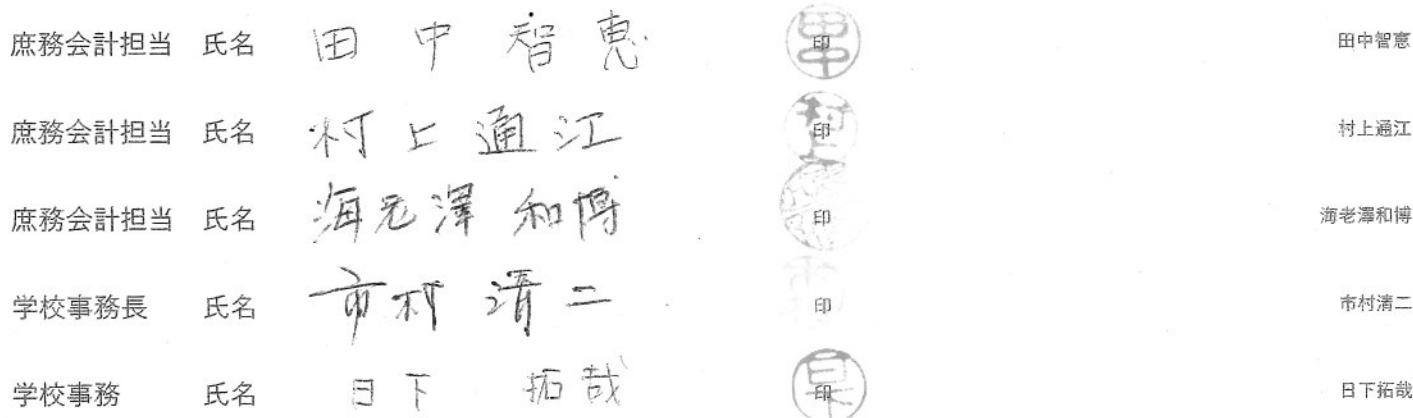 庶務会計担当 氏名 田中智恵 印 田中智恵
庶務会計担当 氏名 村上通江 印 村上通江
庶務会計担当 氏名 海老澤和博 印 海老澤和博
学校事務長 氏名 市村清二 印 市村清二
学校事務 氏名 日下拓哉 印 日下拓哉